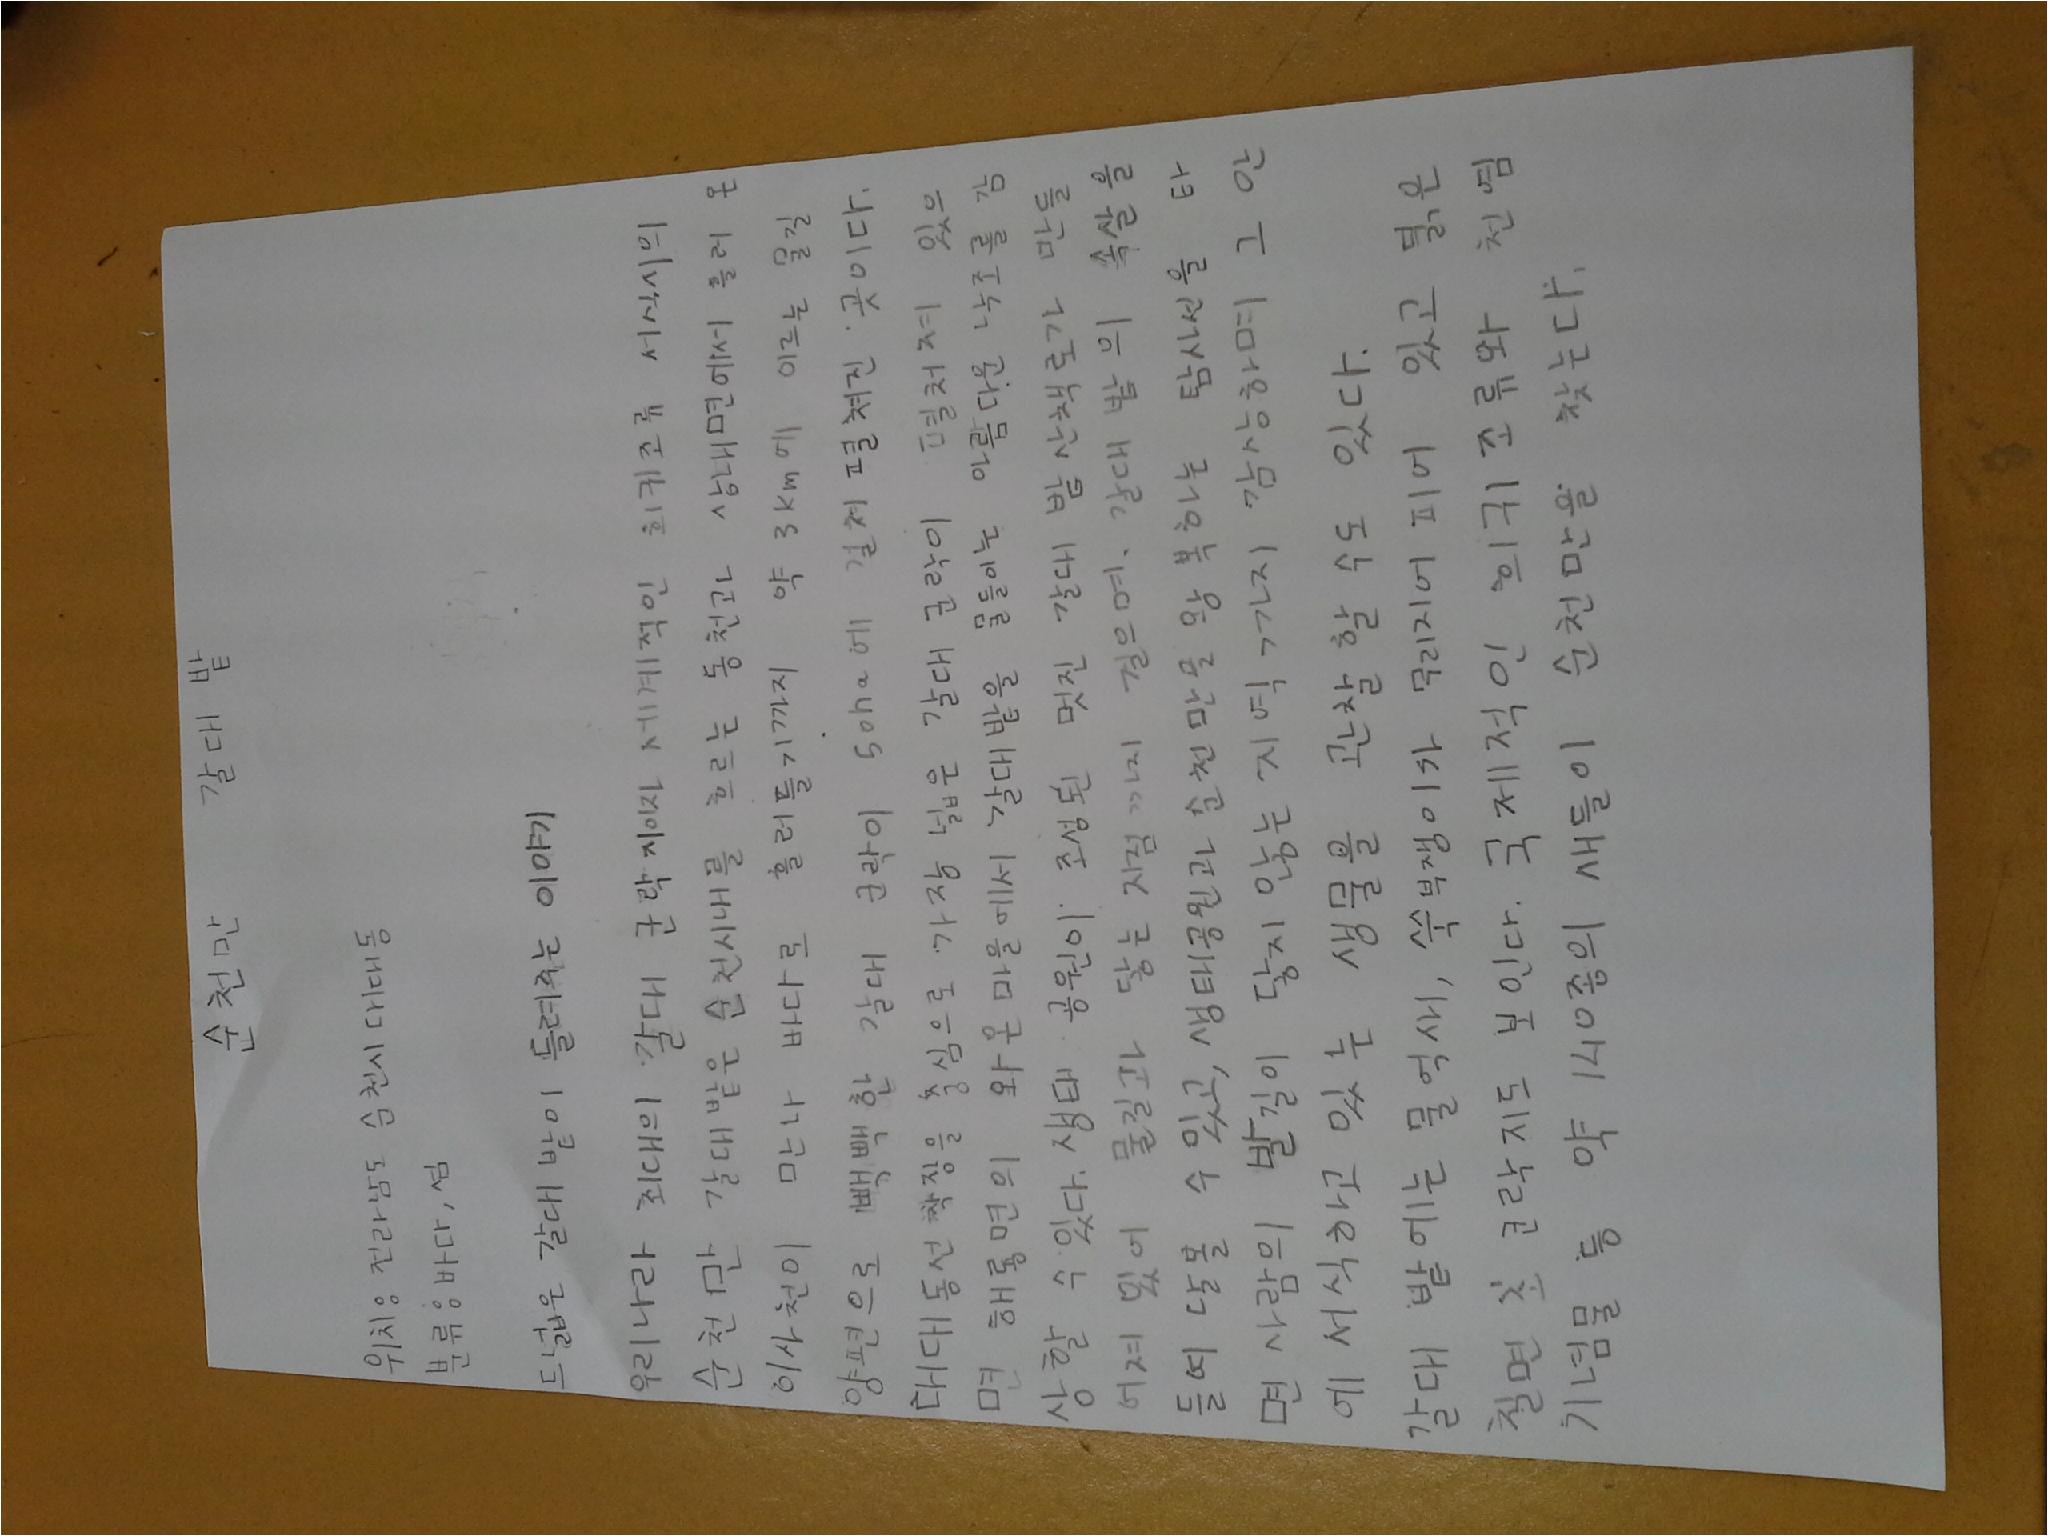 순천만 갈대 밭
위치 : 전라남도 순천시 대대동
분류 : 바다, 섬
드넓은 갈대 밭이 들려주는 이야기
우리나라 최대의 갈대 군락지이자 세계적인 희귀조류 서식지의
순천만 갈대밭은 순천시내를 흐르는 동천과 상내면에서 흘러 온
이사천이 만나 바다로 흘러들기까지 약 3km에 이르는 물길
양편으로 빽빽한 갈대 군락이 50ha에 걸쳐 펼쳐진 곳이다.
대대동선착장을 중심으로 가장 넓은 갈대 군락이 펼처져 있으
면 해룡면의 와온마을에서 갈대밭을 물들이는 아름다운 낙조를 감
상할 수 있다. 생태 공원이 조성된 멋진 갈대 밭 산책로가 만들
어져 있어 물길과 닿는 지점까지 걸으며, 갈대 밭의 속살을
들여다볼 수 있고, 생태공원과 순천만을 왕복하는 탐사선을 타
면 사람의 발길이 닿지 않는 지역까지 감상하며 그 안
에 서식하고 있는 생물을 관찰 할 수도 있다.
갈대 밭에는 물억새, 쑥부쟁이가 무리지어 피어 있고 붉은
칠면초 군락지도 보인다. 국제적인 희귀조류와 천연
기념물 등 약 140종의 새들이 순천만을 찾는다.